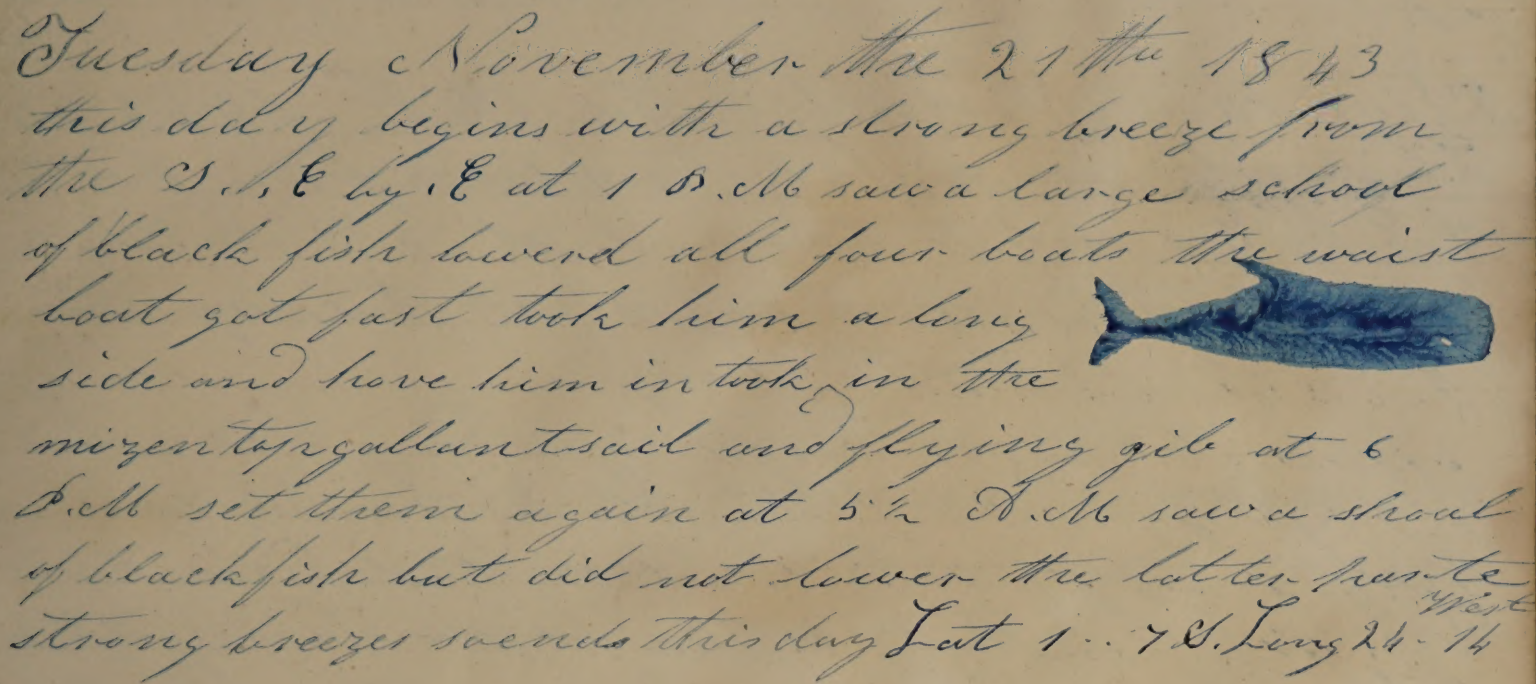 Tuesday November the 21 the 1843
this day begins with a strong breeze from
the S. . E by . E at 1 P.M saw a large school
of black fish lowerd all four boats the waist
boat got fast took him a long
side and hove him in took in the
mizen topgallantsail and flying gib at 6
P.M set them again at 5 ½ A.M saw a shoal
of blackfish but did not lower the latter parte
strong breezes soends this day Lat 1 .. 7 S. Long 24 - 14 West